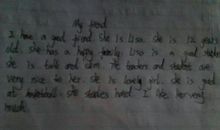 My friend
I have a good friend. She is Lisa. She is 12 years
old. She has a happy family. Lisa is a good student
she is and . The teachers and students are
very nice to her. she is lovely girl. she is good
at basketball. she studies hard. I like her very
much.